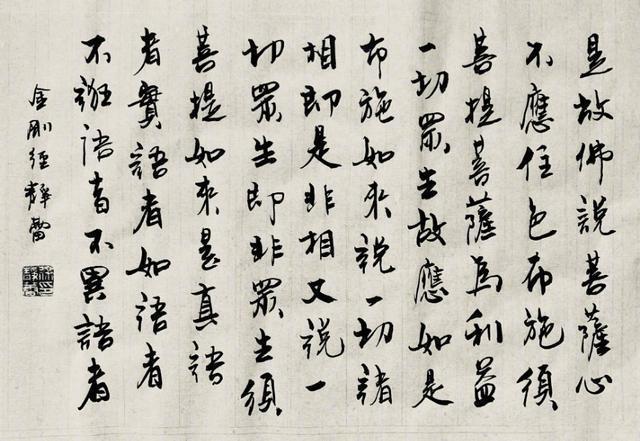 是故佛說菩薩心
不應住色布施須
菩提菩薩為利益
一切眾生故應如是
布施如來說一切諸
相即是非相又說一
切眾生即非眾生須
菩提如來是真語
者實語者如語者
不誑語者不異語者
金剛經靜蕾